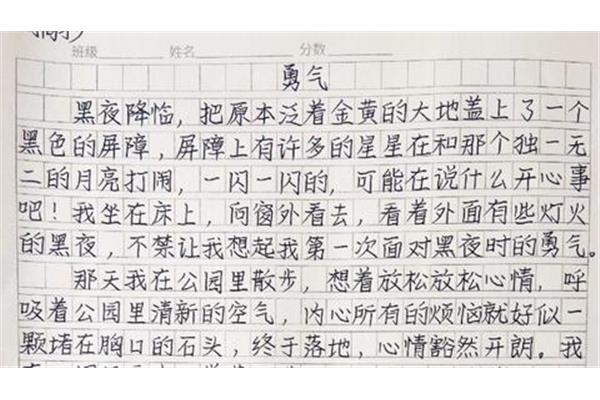 班级 姓名 分数
勇气
黑夜降临，把原本泛着金黄的大地盖上了一个
黑色的屏障，屏障上有许多的星星在和那个独一无
二的月亮打闹，一闪一闪的，可能在说什么开心事
吧！我坐在床上，向窗外看去，看着外面有些灯火
的黑夜，不禁让我想起我第一次面对黑夜时的勇气。
那天我在公园里散步，想着放松放松心情，呼
吸着公园里清新的空气，内心所有的烦恼就好似一
颗堵在胸口的石头，终于落地，心情豁然开朗。我